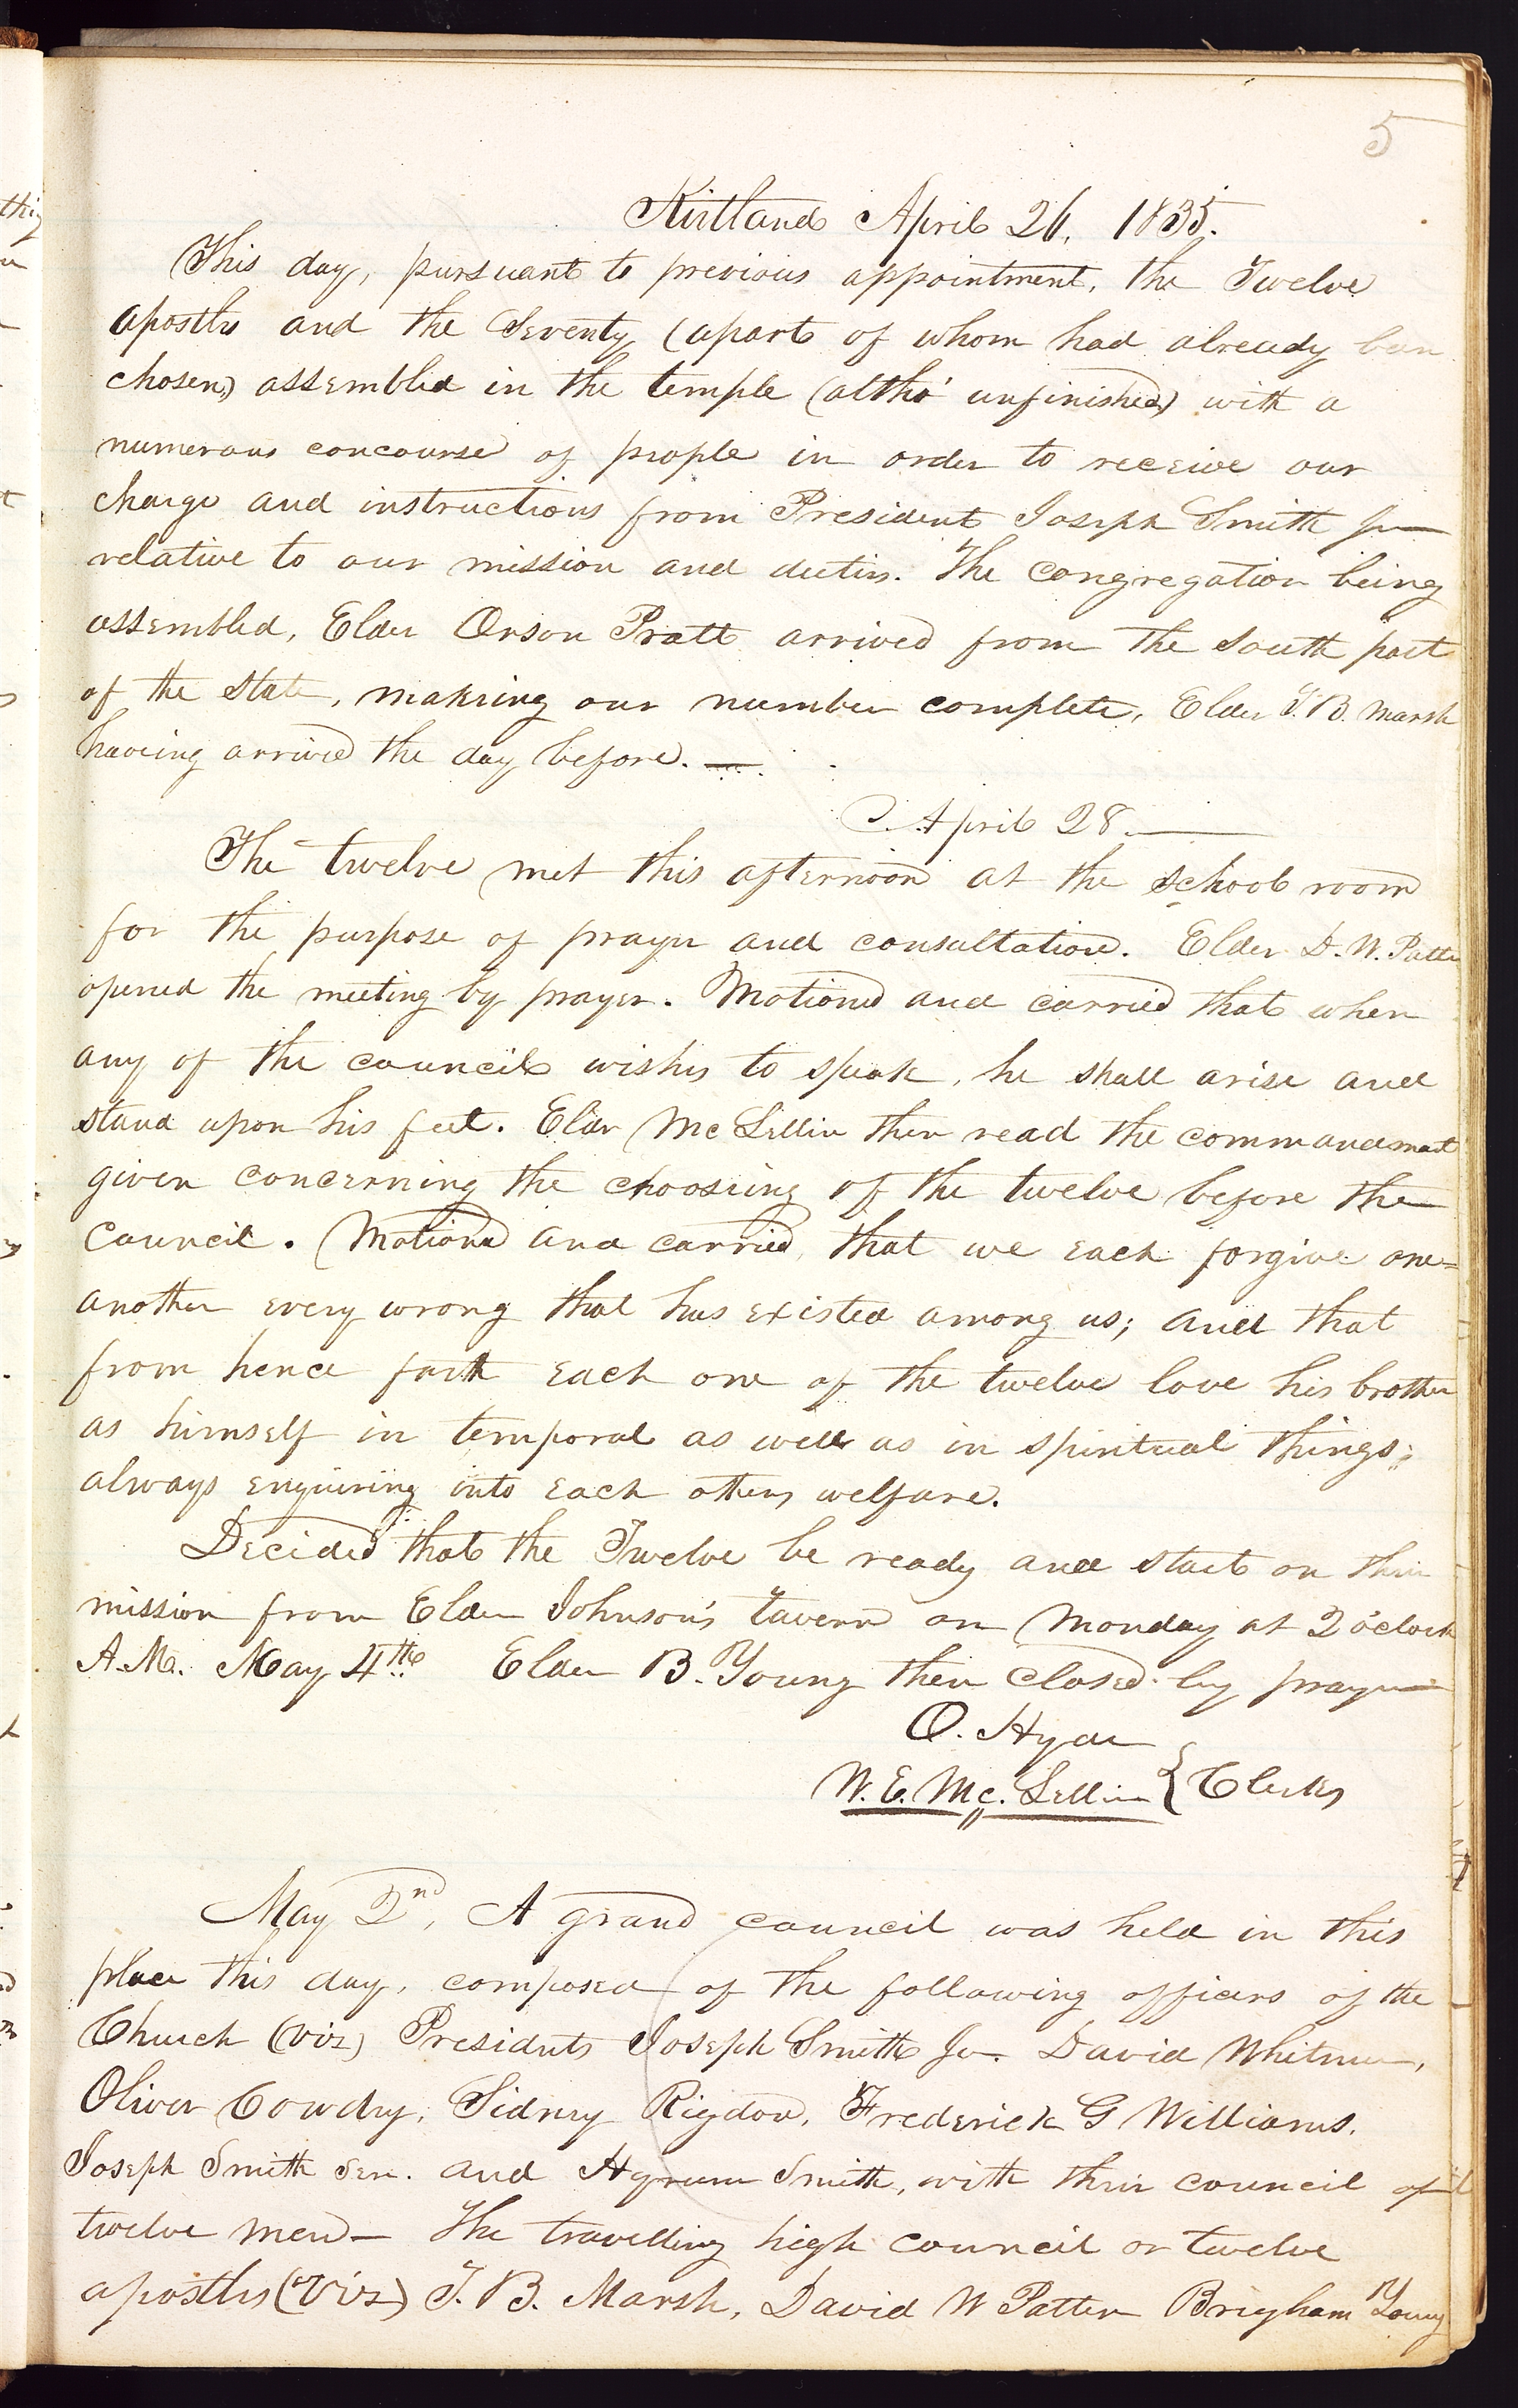 5
Kirtland April 26, 1835.
This day, pursuant to previous appointment, the Twelve
apostles and the Seventy (apart of whom had already been
chosen) assembled in the temple (altho' unfinished) with a
numerous concourse of people in order to receive our
charge and instructions from President Joseph Smith Jun
relative to our mission and duties. The congregation being
assembled, Elder Orson Pratt arrived from the South part
of the State, making our number complete, Elder T. B. Marsh
having arrived the day before. —
April 28. —
The twelve met this afternoon at the school room
for the purpose of prayer and consultation. Elder D. W. Patten
opened the meeting by prayer. Motioned and carried that when
any of the council wishes to speak, he shall arise and
stand upon his feet. Elder Mc Lellin then read the commandment
given concerning the choosing of the twelve before the
council. Motioned and carried, that we each forgive one=
another every wrong that has existed among us; and that
from hence forth each one of the twelve love his brother
as himself in temporal as well as in spiritual things;
always enquiring into each others welfare.
Decided that the Twelve be ready and start on their
mission from Elder Johnson's tavern on Monday at 2 o'clock
A.M. May 4th. Elder B. Young then closed by prayer
O. Hyde
W. E. Mc. Lellin } Clerks
May 2nd, A grand council was held in this
place this day, composed of the following officers of the
Church (viz) Presidents Joseph Smith Jr. David Whitmer,
Oliver Cowdry, Sidney Rigdon, Frederick G Williams.
Joseph Smith Sen. and Hyrum Smith, with their council of
twelve men— The travelling high council or twelve
apostles (viz) T. B. Marsh, David W Patten Brigham Young